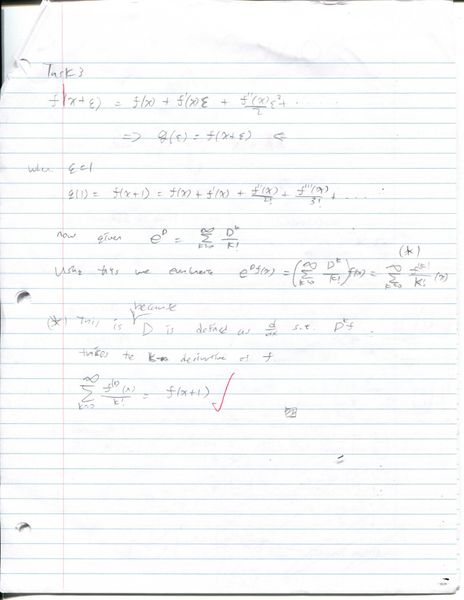 Task 3
f(x+ε) = f(x) + f'(x)ε + f''(x)/2 ε² + ......
=> g(ε) = f(x+ε)
when ε=1
g(1) = f(x+1) = f(x) + f'(x) + f''(x)/2! + f'''(x)/3! + ...
now given e^D = ∑_{k=0}^∞ D^k/k!
(*)
Using this we e^D f(x) = (∑_{k=0}^∞ D^k/k!) f(x) = ∑_{k=0}^∞ f^(k)/k! (x)
because
(*) This is D is defined as d/dx s.t. D^k f
takes the k-th derivative of f
∑_{k=0}^∞ f^(k)(x)/k! = f(x+1) ✓